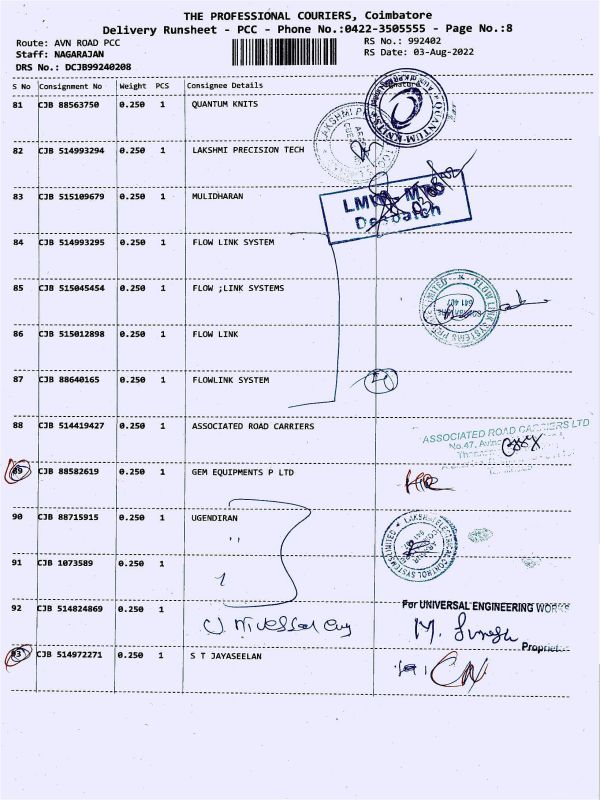 THE PROFESSIONAL COURIERS, Coimbatore
Delivery Runsheet - PCC - Phone No.:0422-3505555 - Page No.:8
Route: AVN ROAD PCC
Staff: NAGARAJAN
DRS No.: DCJB99240208
RS No.: 992402
RS Date: 03-Aug-2022
S No Consignment No Weight PCS Consignee Details
81 CJB 88563750 0.250 1 QUANTUM KNITS
QUANTUM KNITS
82 CJB 514993294 0.250 1 LAKSHMI PRECISION TECH
LAKSHMI
83 CJB 515109679 0.250 1 MULIDHARAN
LMW
Despatch
84 CJB 514993295 0.250 1 FLOW LINK SYSTEM
85 CJB 515045454 0.250 1 FLOW ;LINK SYSTEMS
FLOW LINK SYSTEMS
LIMITED
86 CJB 515012898 0.250 1 FLOW LINK
87 CJB 88640165 0.250 1 FLOWLINK SYSTEM
88 CJB 514419427 0.250 1 ASSOCIATED ROAD CARRIERS
ASSOCIATED ROAD CARRIERS LTD
No.47,
89 CJB 88582619 0.250 1 GEM EQUIPMENTS P LTD
90 CJB 88715915 0.250 1 UGENDIRAN
LAKSHMI ELECTRICAL CONTROL SYSTEMS LIMITED
91 CJB 1073589 0.250 1
92 CJB 514824869 0.250 1
For UNIVERSAL ENGINEERING WORKS
M. Suresh
93 CJB 514972271 0.250 1 S T JAYASEELAN